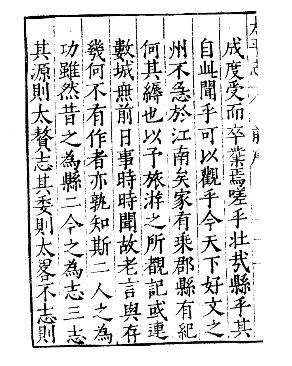 成度受而卒業焉嗟乎壯哉縣乎其
自此聞乎可以觀乎今天下好文之
州不急於江南矣家有乘郡縣有紀
何其縟也以予旅游之所觀記或連
數城無前日事時時聞故老言與存
幾何不有作者亦孰知斯二人之為
功雖然昔之為縣二今之為志三志
其源則太贅志其委則太畧不志則